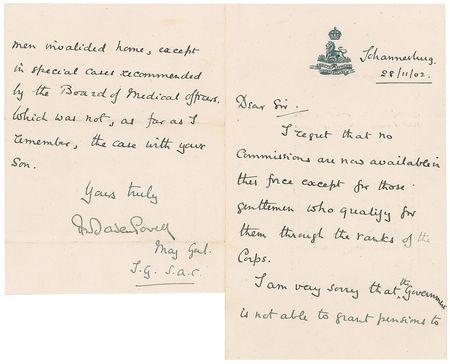 Johannesburg.
28/11/02.
Dear Sir.
I regret that no
Commissions are now available in
this force except for those
gentlemen who qualify for
them through the ranks of the
Corps.
I am very sorry that the Government
is not able to grant pensions to
men invalided home, except
in special cases recommended
by the Board of Medical officers.
Which was not, as far as I
remember, the case with your
Son.
Yours truly
Baden Powell
Maj Genl.
I.G. S.A.C.